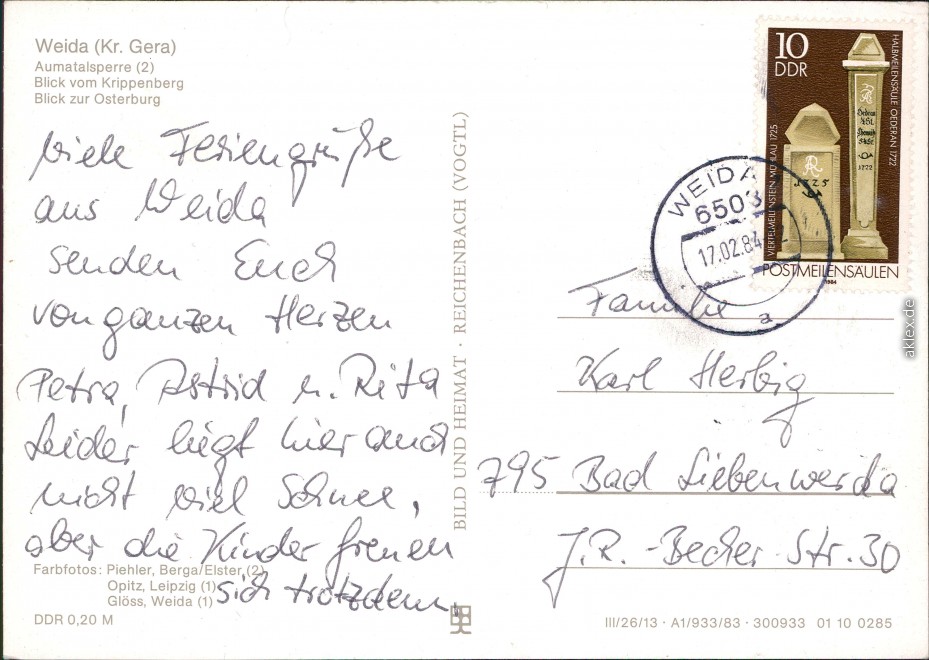 Weida (Kr. Gera)
Aumatalsperre (2)
Blick vom Krippenberg
Blick zur Osterburg
viele Feriengrüße
aus Weida
senden Euch
von ganzen Herzen
Petra, Astrid u. Rita
Leider liegt hier auch
nicht viel Schnee,
aber die Kinder freuen
sich trotzdem.
Farbfotos: Piehler, Berga/Elster (2)
Opitz, Leipzig (1)
Glöss, Weida (1)
DDR 0,20 M
BILD UND HEIMAT · REICHENBACH (VOGTL)
10
DDR
HALBMEILENSÄULE OEDERAN 1722
VIERTELMEILENSTEIN MÜHLAU 1725
AR
1725
1722
POSTMEILENSÄULEN
1984
WEIDA
6503
17.02.84
a
Familie
Karl Herbig
795 Bad Liebenwerda
J.R.-Becher-Str. 30
III/26/13 · A1/933/83 · 300933 01 10 0285
aklex.de